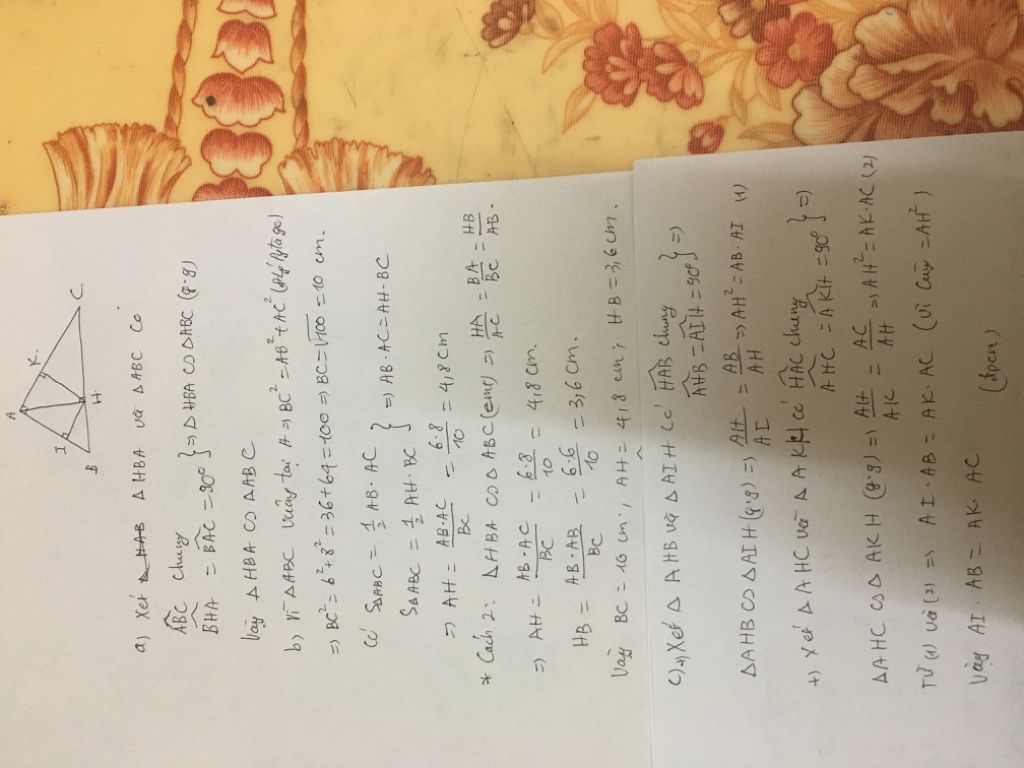 A
I
K
B
H
C
a) Xét Δ HAB Δ HBA và Δ ABC có
ABC chung
BHA = BAC = 90° } => Δ HBA ∽ Δ ABC (g.g)
Vậy Δ HBA ∽ Δ ABC
b) Vì Δ ABC vuông tại A => BC² = AB² + AC² (Đlý Pytago)
=> BC² = 6² + 8² = 36 + 64 = 100 => BC = √100 = 10 cm.
Có SΔABC = 1/2 AB . AC
SΔABC = 1/2 AH . BC } => AB . AC = AH . BC
=> AH = AB.AC/BC = 6.8/10 = 4,8 cm
* Cách 2: Δ HBA ∽ Δ ABC (cmt) => HA/AC = BA/BC = HB/AB.
=> AH = AB.AC/BC = 6.8/10 = 4,8 cm.
HB = AB.AB/BC = 6.6/10 = 3,6 cm.
Vậy BC = 10 cm, AH = 4,8 cm; HB = 3,6 cm.
c) +) Xét Δ AHB và Δ AIH có HAB chung
AHB = AIH = 90° } =>
Δ AHB ∽ Δ AIH (g.g) => AH/AI = AB/AH => AH² = AB . AI (1)
+) Xét Δ AHC và Δ AKH có HAC chung
AHC = AKH = 90° } =>
Δ AHC ∽ Δ AKH (g.g) => AH/AK = AC/AH => AH² = AK . AC (2)
Từ (1) và (2) => AI . AB = AK . AC (vì cùng = AH²)
Vậy AI . AB = AK . AC (đpcm)